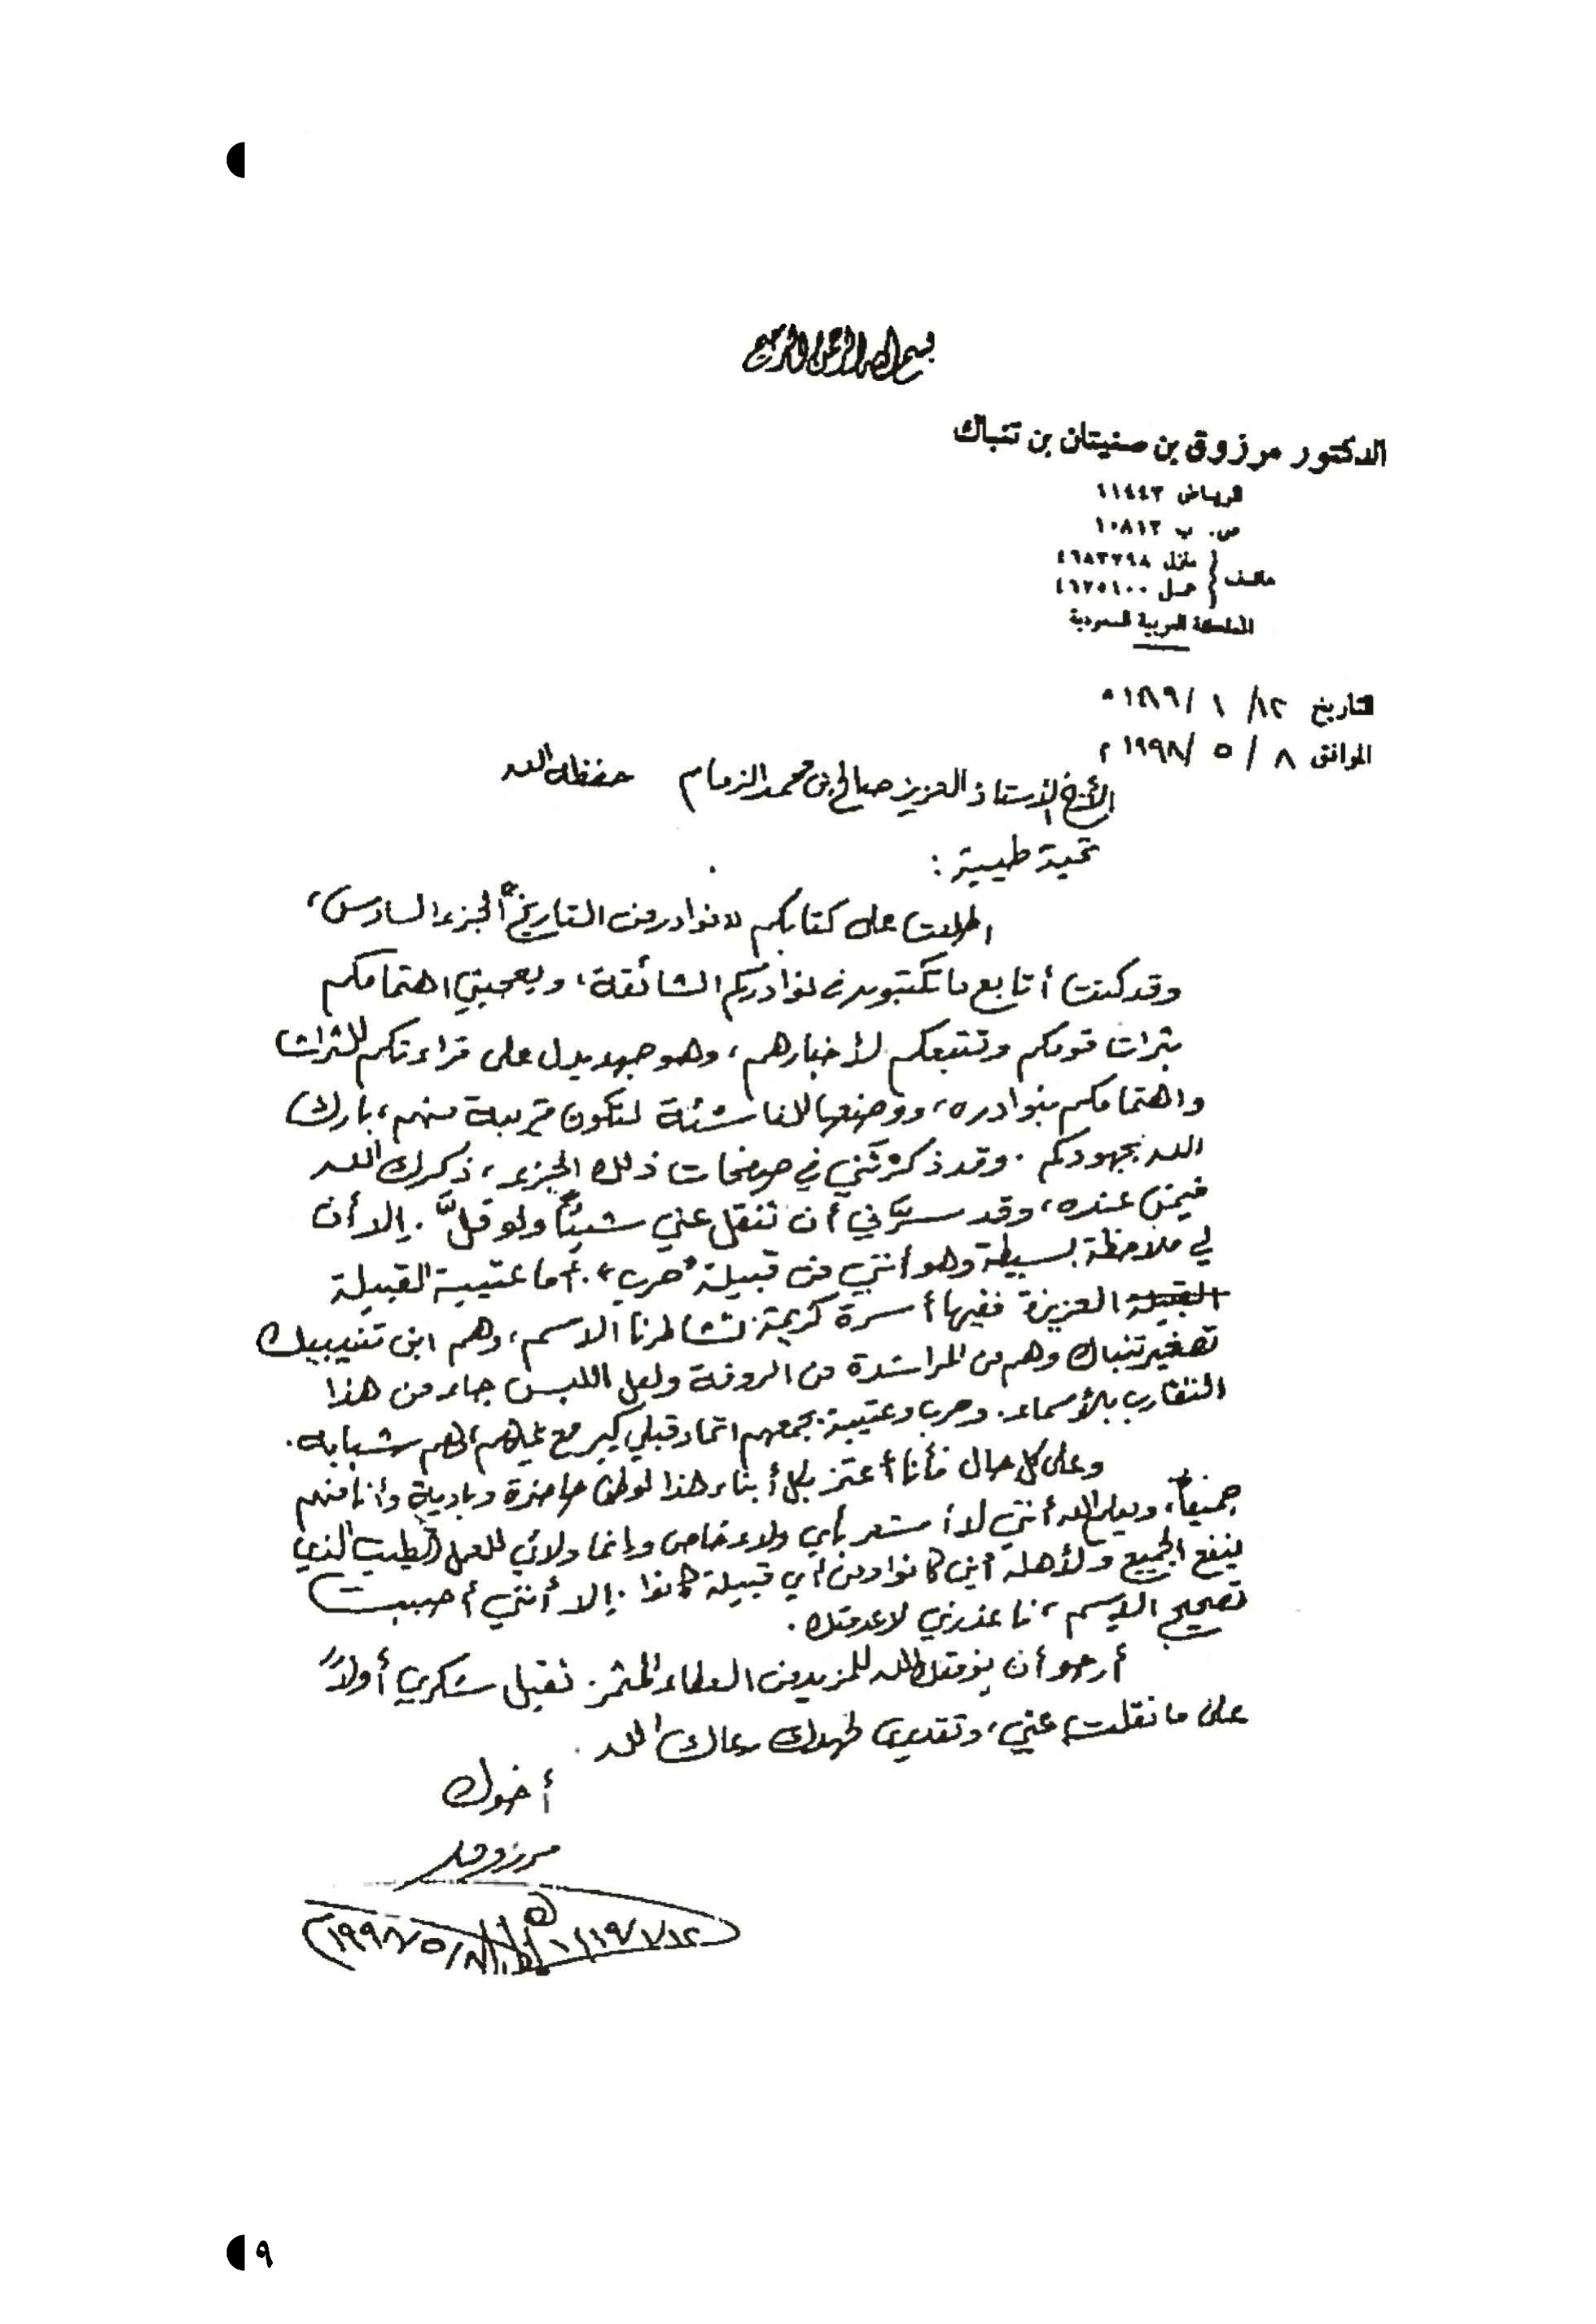 بسم الله الرحمن الرحيم
الدكتور مرزوق بن صنيتان بن تنباك
الرياض ١١٤٤٣
ص. ب ١٠٨١٣
هاتف { منزل ٤٦٨٣٢٩٨
عمل ٤٦٧٥١٠٠
المملكة العربية السعودية
التاريخ ١٢/ ١ /١٤١٩ هـ
الموافق ٨ / ٥ /١٩٩٨ م
الأخ الأستاذ العزيز صالح بن محمد الزمام حفظه الله
تحية طيبة :
اطلعت على كتابكم «نوادر من التاريخ» الجزء السادس،
وقد كنت أتابع ما تكتبون من نوادركم الشائقة، ويعجبني اهتمامكم
بتراث قومكم وتتبعكم لأخبارهم، وهو جهد يدل على قراءتكم للتراث
واهتمامكم بنوادره، ووضعها للناشئة لتكون قريبة منهم، بارك
الله بجهودكم . وقد ذكرتني في صفحات ذلك الجزء، ذكرك الله
فيمن عنده، وقد سرّني أن تنقل عني شيئاً ولو قلَّ . إلا أن
لي ملاحظة بسيطة وهو أنني من قبيلة «حرب». أما عتيبة القبيلة
القبيلة العزيزة ففيها أسرة كريمة تشاطرنا الاسم، وهم ابن تنيبيك
تصغير تنباك وهم من المراشدة من الروقة ولعل اللبس جاء من هذا
التقارب بالأسماء. وحرب وعتيبة يجمعهم اتحاد قبلي كبير مع غيرهم اسم شبابه.
وعلى كل حال فأنا أعتز بكل أبناء هذا الوطن حاضرة وبادية وأنا منهم
جميعاً، ويعلم الله أنني لا أشعر بأي ولاء خاص وإنما ولائي للعمل الطيب الذي
ينفع الجميع ولأهله أين كانوا ومن أي قبيلة كانوا . إلا أنني أحببت
تصحيح الاسم، فاعذرني لا عدمتك .
أرجو أن يوفقك الله للمزيد من العطاء المثمر. تقبل شكري أولاً
على ما نقلت عني، وتقديري لجهدك رعاك الله .
أخوك
مرزوق
١٩٩٨/٥/٨م
٩